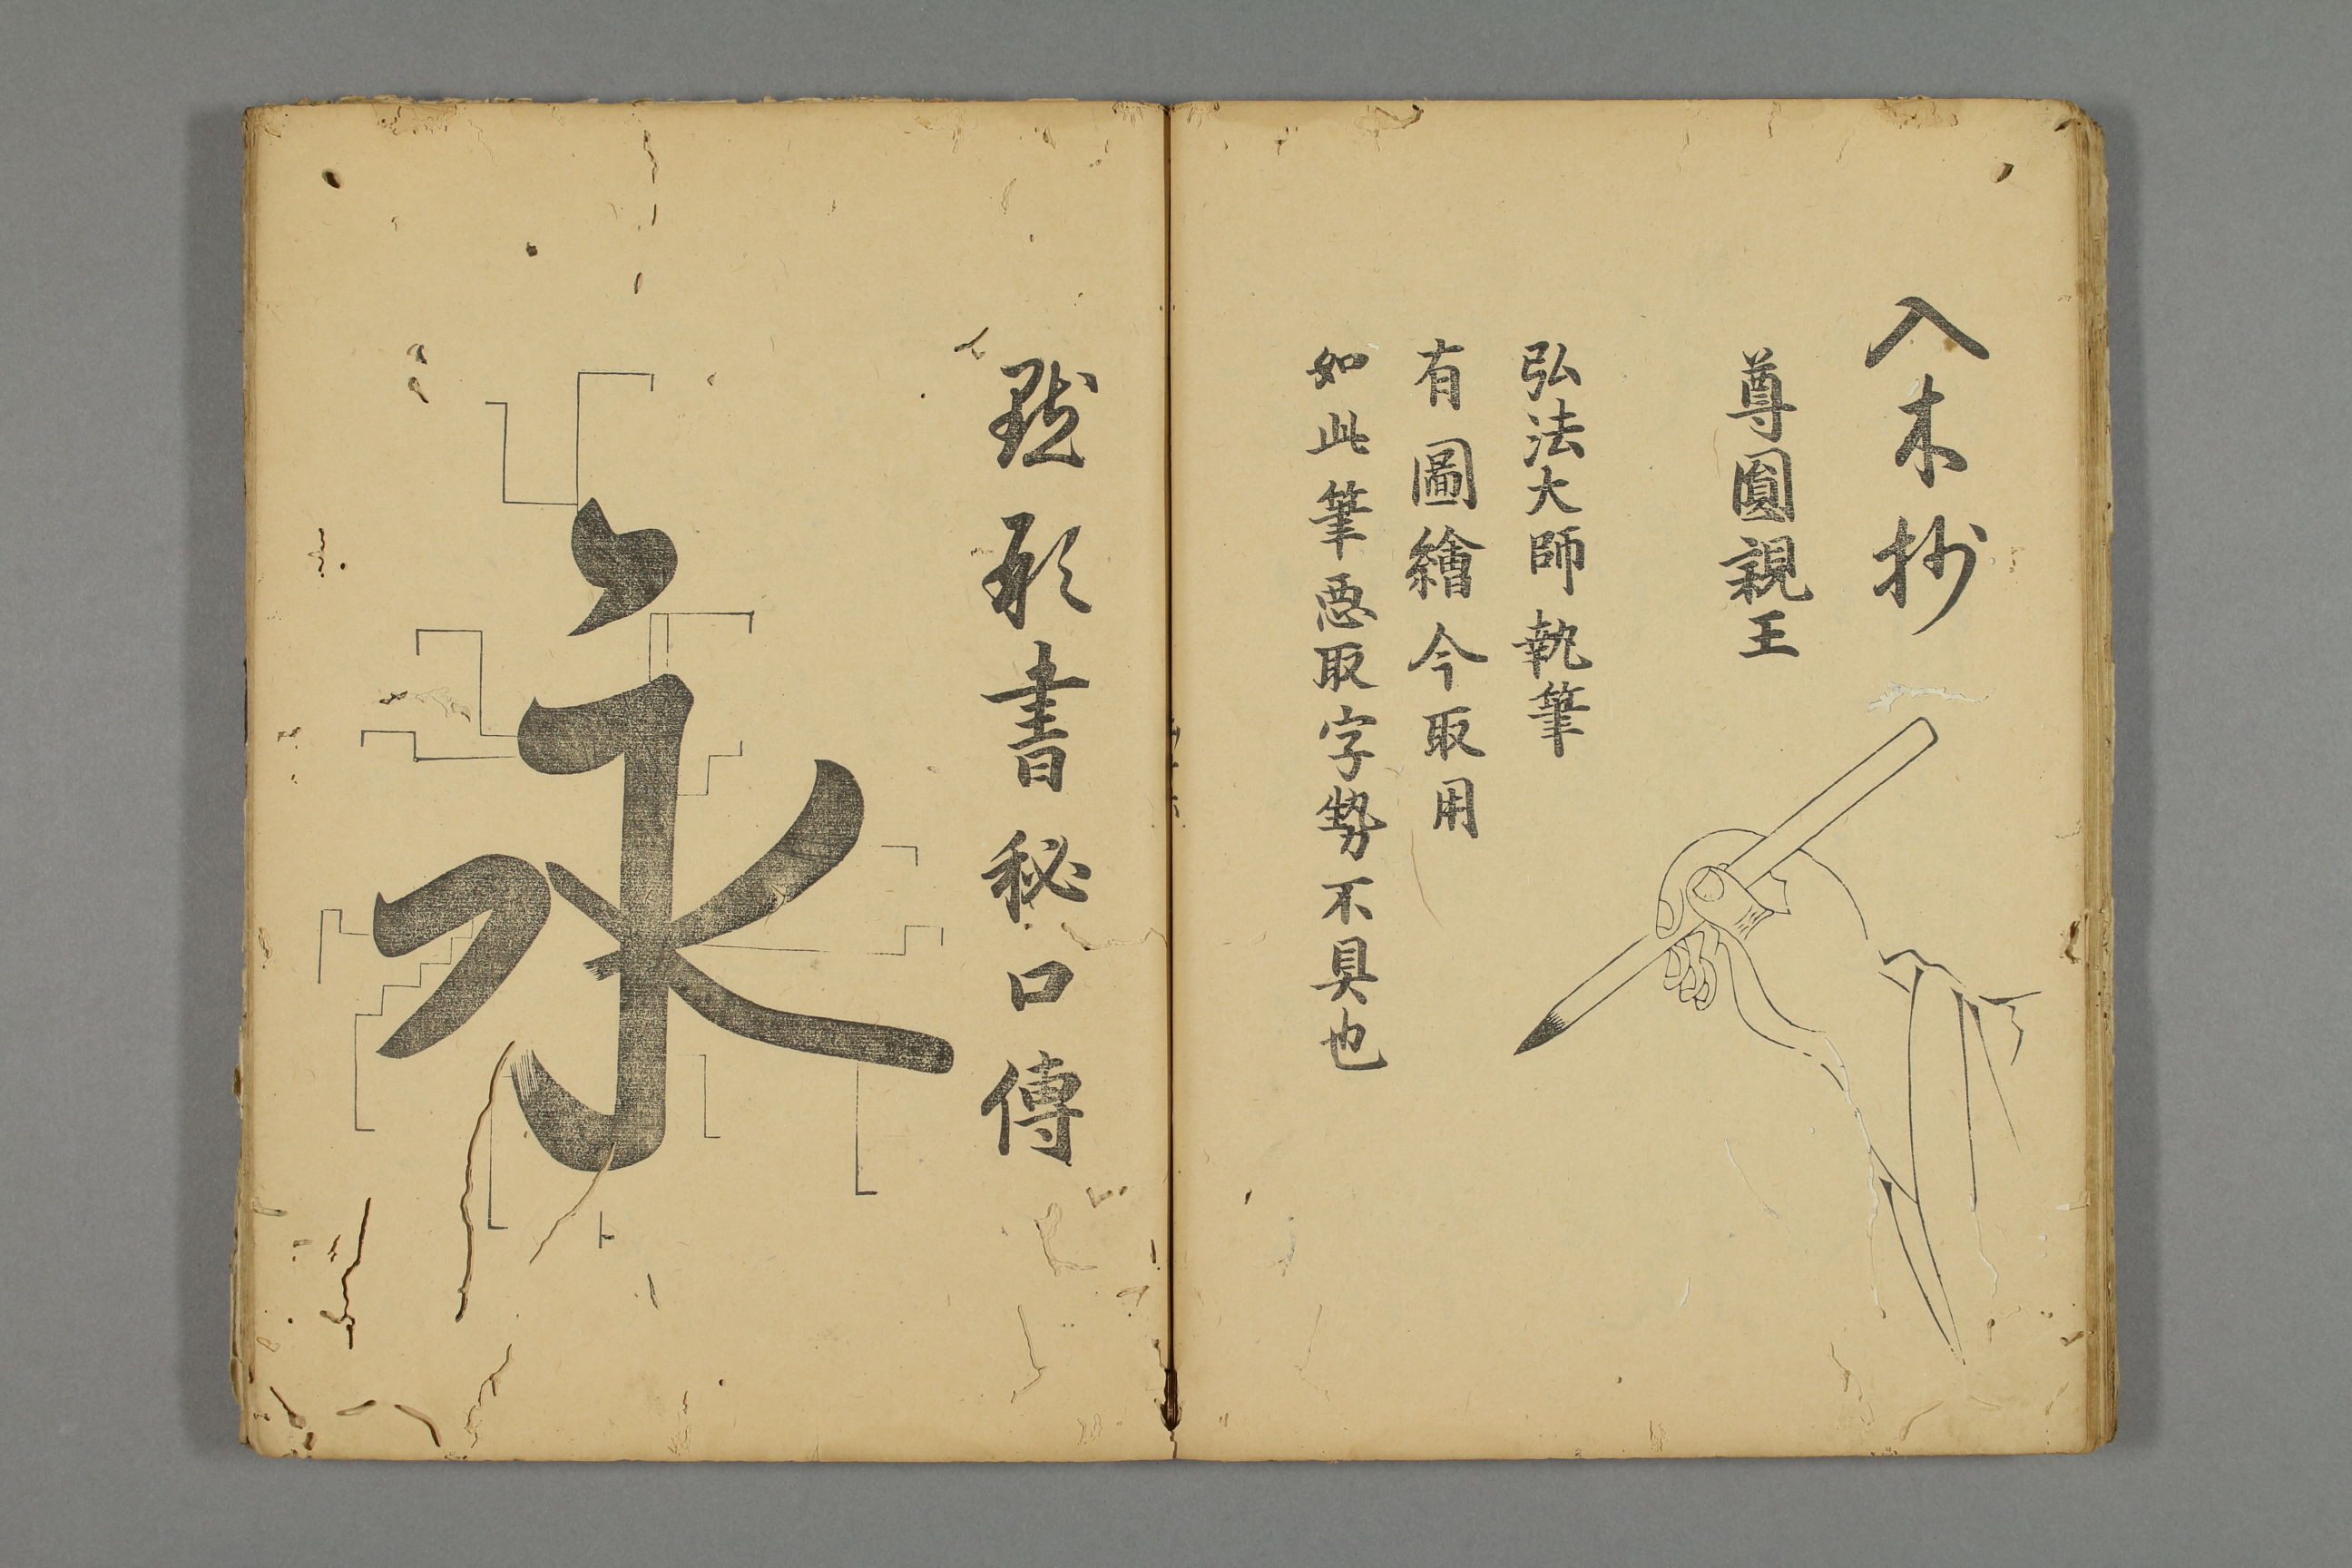 入木抄
尊圓親王
弘法大師執筆
有圖繪今取用
如此筆惡取字勢不具也
點形書秘口傳
永